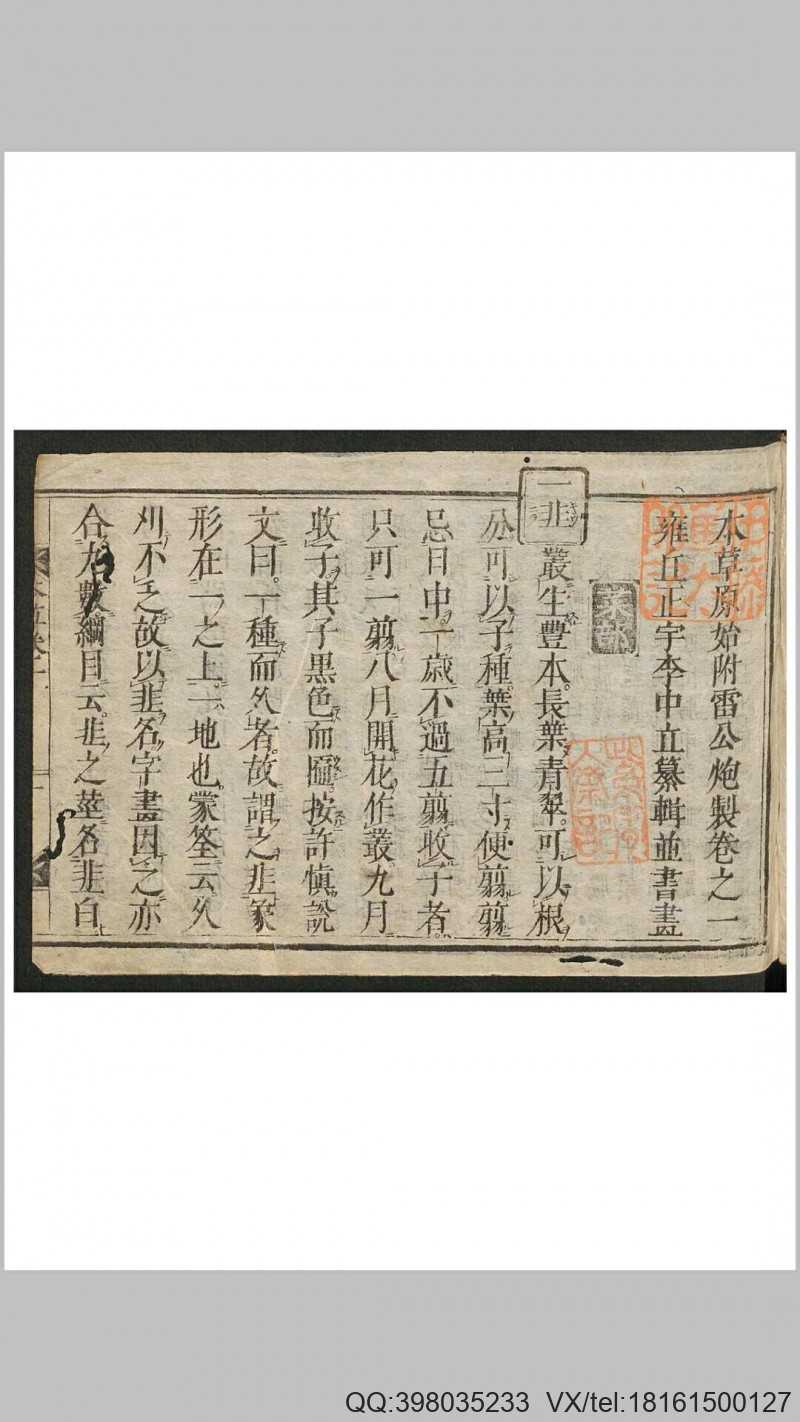 本草原始附雷公炮製卷之一
雍丘正宇李中立纂輯並書畫
菜部
一韭
叢生豐本長葉青翠可以根
分可以子種葉高三寸便剪剪
忌日中一歲不過五剪收子者
只可一剪八月開花作叢九月
收子其子黑色而匾按許慎說
文曰一種而久者故謂之韭篆
形在一之上一地也蒙筌云久
刈不乏故以韭名字畫因之亦
合九數綱目云韭之莖名韭白
QQ:398035233 VX/tel:18161500127